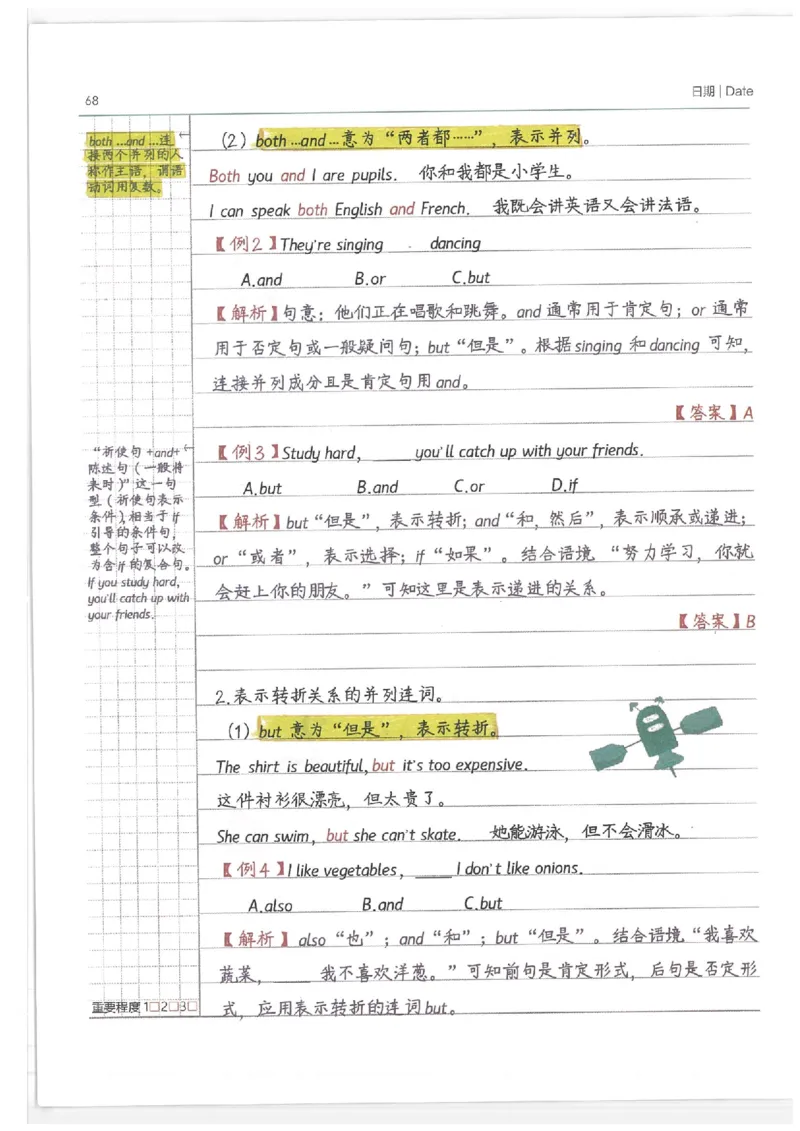 68
日期 | Date
both …and …连
接两个并列的人
称作主语，谓语
动词用复数。
（2）both …and …意为“两者都……”，表示并列。
Both you and I are pupils. 你和我都是小学生。
I can speak both English and French. 我既会讲英语又会讲法语。
【例2】They're singing dancing
A.and B.or C.but
【解析】句意：他们正在唱歌和跳舞。and 通常用于肯定句；or 通常
用于否定句或一般疑问句；but“但是”。根据 singing 和 dancing 可知，
连接并列成分且是肯定句用 and。
【答案】A
“祈使句 +and+
陈述句（一般将
来时）”这一句
型（祈使句表示
条件），相当于 if
引导的条件句，
整个句子可以改
为含 if 的复合句。
If you study hard,
you'll catch up with
your friends.
【例3】Study hard, _____ you'll catch up with your friends.
A.but B.and C.or D.if
【解析】but“但是”，表示转折；and“和，然后”，表示顺承或递进；
or“或者”，表示选择；if“如果”。结合语境 “努力学习，你就
会赶上你的朋友。”可知这里是表示递进的关系。
【答案】B
2.表示转折关系的并列连词。
（1）but 意为“但是”，表示转折。
The shirt is beautiful, but it's too expensive.
这件衬衫很漂亮，但太贵了。
She can swim, but she can't skate. 她能游泳，但不会滑冰。
【例4】I like vegetables, _____ I don't like onions.
A.also B.and C.but
【解析】also“也”；and“和”；but“但是”。结合语境“我喜欢
蔬菜，_____ 我不喜欢洋葱。”可知前句是肯定形式，后句是否定形
式，应用表示转折的连词 but。
重要程度 1□2□3□